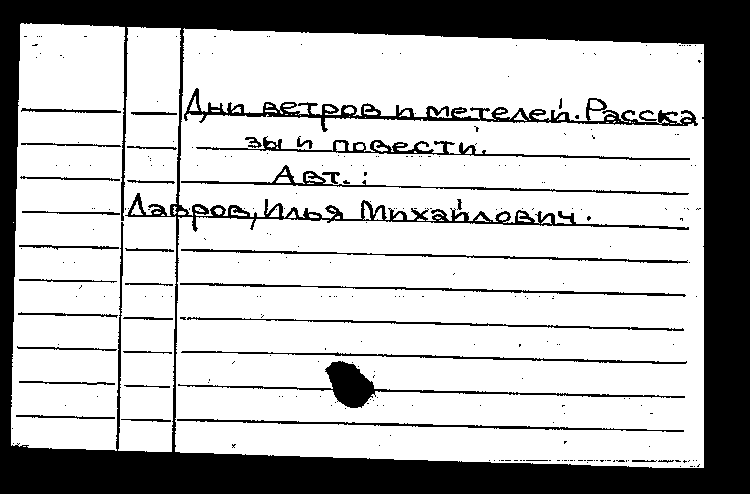 Дни ветров и метелей. Расска
зы и повести.
Авт.:
Лавров, Илья Михайлович.